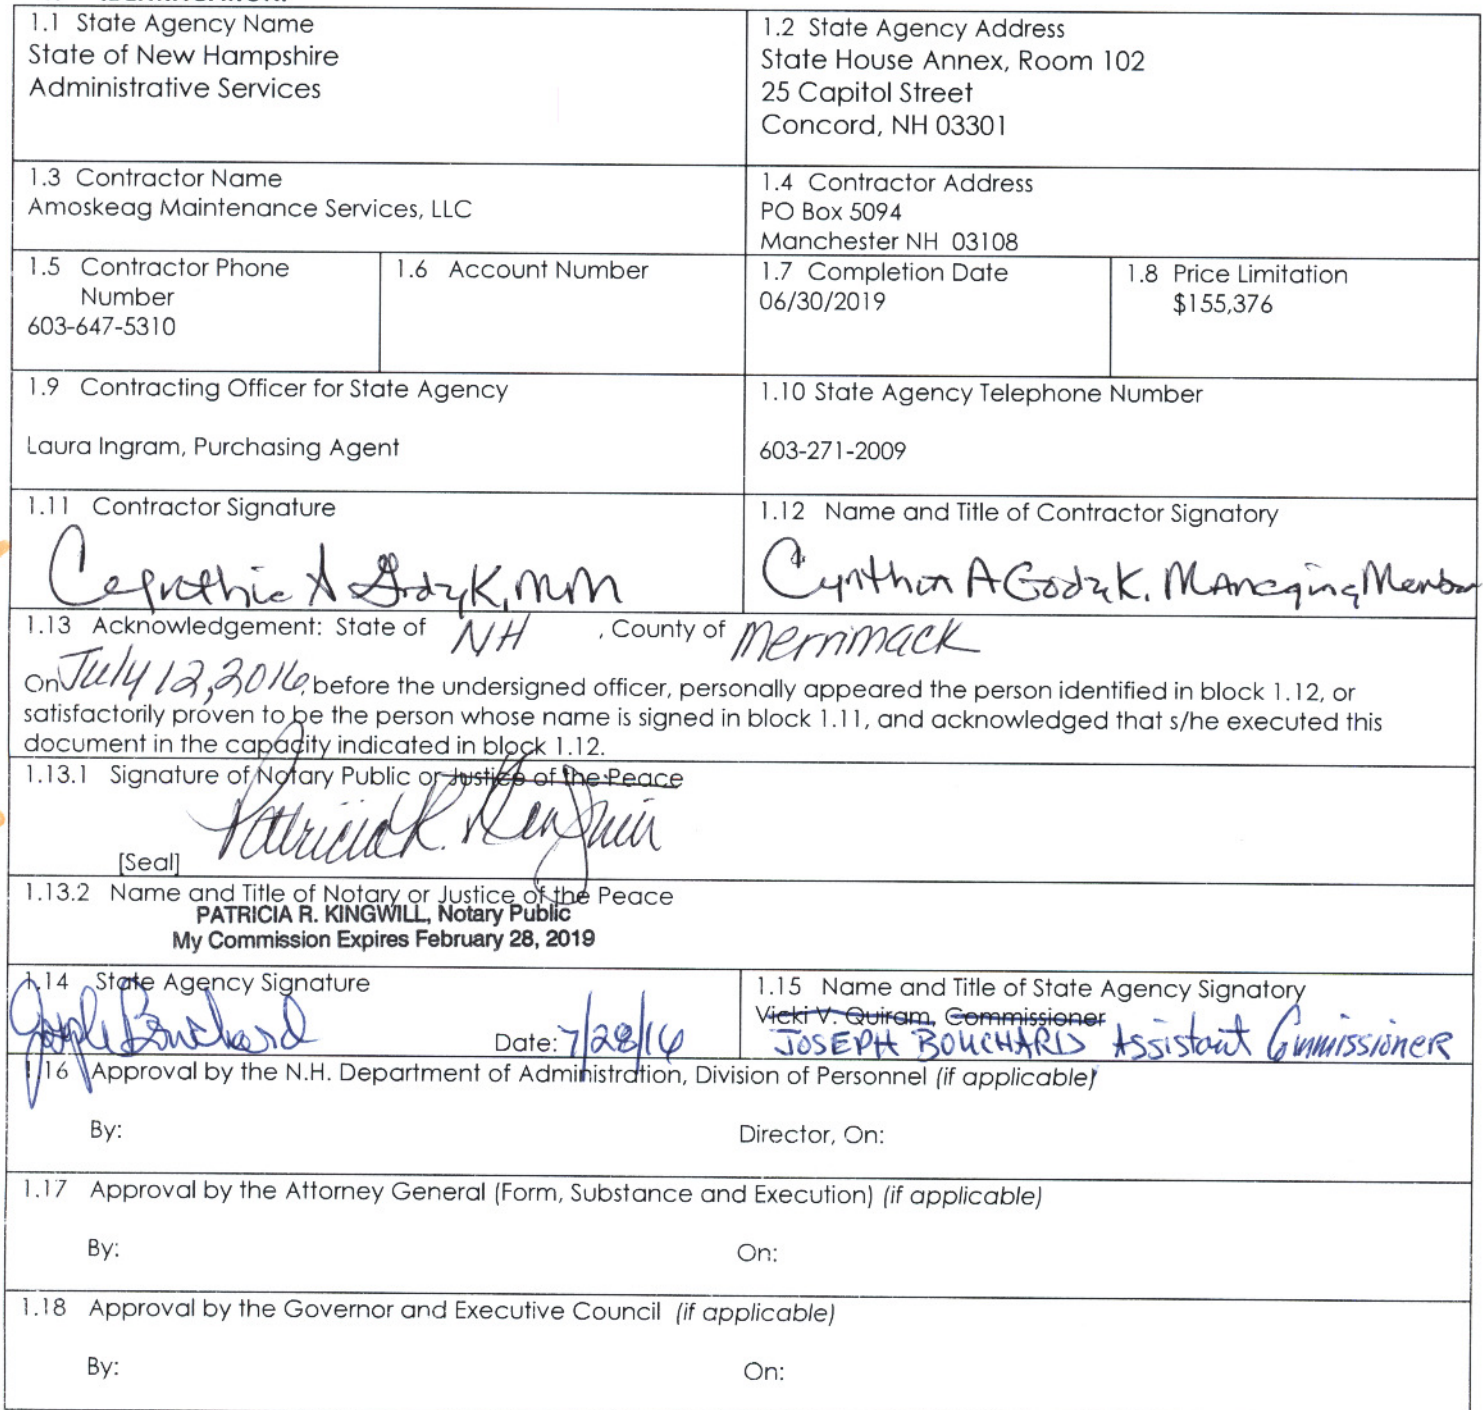 1.1 State Agency Name
State of New Hampshire
Administrative Services
1.2 State Agency Address
State House Annex, Room 102
25 Capitol Street
Concord, NH 03301
1.3 Contractor Name
Amoskeag Maintenance Services, LLC
1.4 Contractor Address
PO Box 5094
Manchester NH 03108
1.5 Contractor Phone
Number
603-647-5310
1.6 Account Number
1.7 Completion Date
06/30/2019
1.8 Price Limitation
$155,376
1.9 Contracting Officer for State Agency
Laura Ingram, Purchasing Agent
1.10 State Agency Telephone Number
603-271-2009
1.11 Contractor Signature
Cynthia A Godzik, MM
1.12 Name and Title of Contractor Signatory
Cynthia A Godzik. Managing Member
1.13 Acknowledgement: State of NH , County of Merrimack
On July 12, 2016, before the undersigned officer, personally appeared the person identified in block 1.12, or
satisfactorily proven to be the person whose name is signed in block 1.11, and acknowledged that s/he executed this
document in the capacity indicated in block 1.12.
1.13.1 Signature of Notary Public or Justice of the Peace
Patricia R. Kingwill
[Seal]
1.13.2 Name and Title of Notary or Justice of the Peace
PATRICIA R. KINGWILL, Notary Public
My Commission Expires February 28, 2019
1.14 State Agency Signature
Joseph Bouchard
Date: 7/28/16
1.15 Name and Title of State Agency Signatory
Vicki V. Quiram, Commissioner
JOSEPH BOUCHARD Assistant Commissioner
1.16 Approval by the N.H. Department of Administration, Division of Personnel (if applicable)
By: Director, On:
1.17 Approval by the Attorney General (Form, Substance and Execution) (if applicable)
By: On:
1.18 Approval by the Governor and Executive Council (if applicable)
By: On: